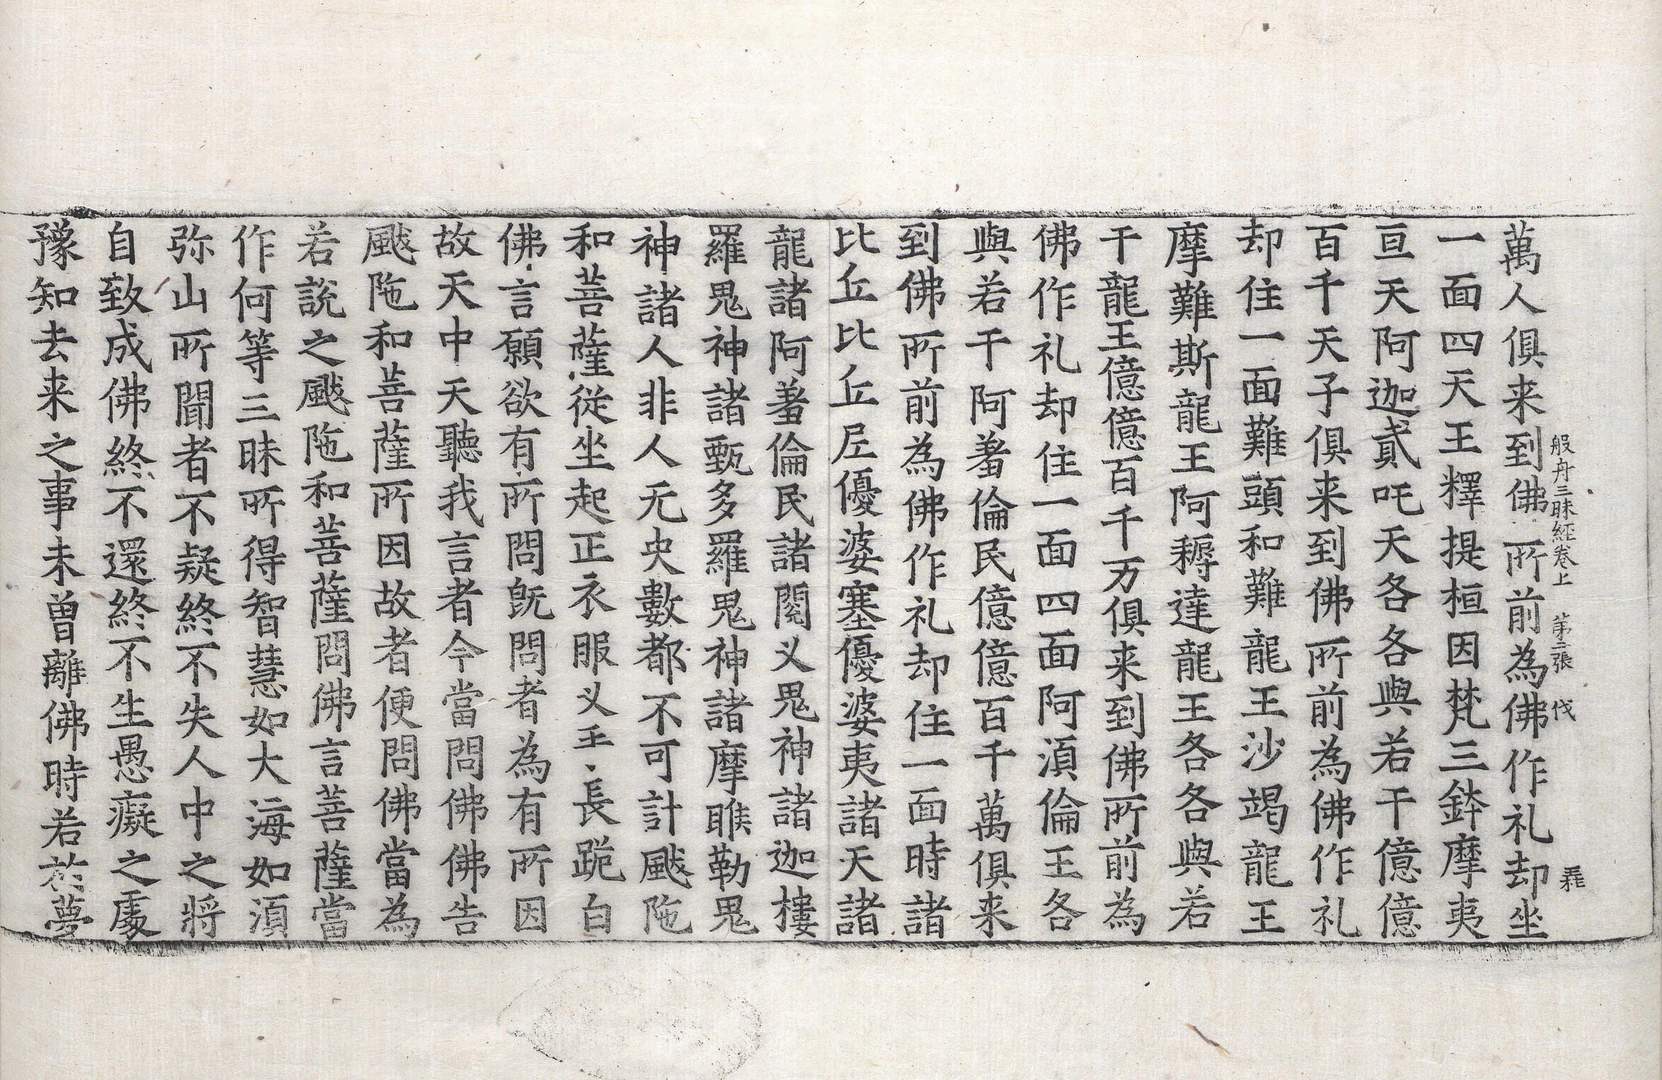 般舟三昧經卷上 第三張 伐
萬人俱来到佛所前為佛作礼却坐
一面四天王釋提桓因梵三鉢摩夷
亘天阿迦貳吒天各各與若干億億
百千天子俱来到佛所前為佛作礼
却住一面難頭和難龍王沙竭龍王
摩難斯龍王阿耨達龍王各各與若
干龍王億億百千万俱来到佛所前為
佛作礼却住一面四面阿湏倫王各
與若干阿羞倫民億億百千萬俱来
到佛所前為佛作礼却住一面時諸
比丘比丘尼優婆塞優婆夷諸天諸
龍諸阿羞倫民諸閱叉鬼神諸迦樓
羅鬼神諸甄多羅鬼神諸摩睺勒鬼
神諸人非人无央數都不可計颰陁
和菩薩從坐起正衣服叉手長跪白
佛言願欲有所問旣問者為有所因
故天中天聽我言者今當問佛佛告
颰陁和菩薩所因故者便問佛當為
若說之颰陁和菩薩問佛言菩薩當
作何等三昧所得智慧如大海如湏
弥山所聞者不疑終不失人中之將
自致成佛終不還終不生愚癡之處
豫知去来之事未曾離佛時若於夢